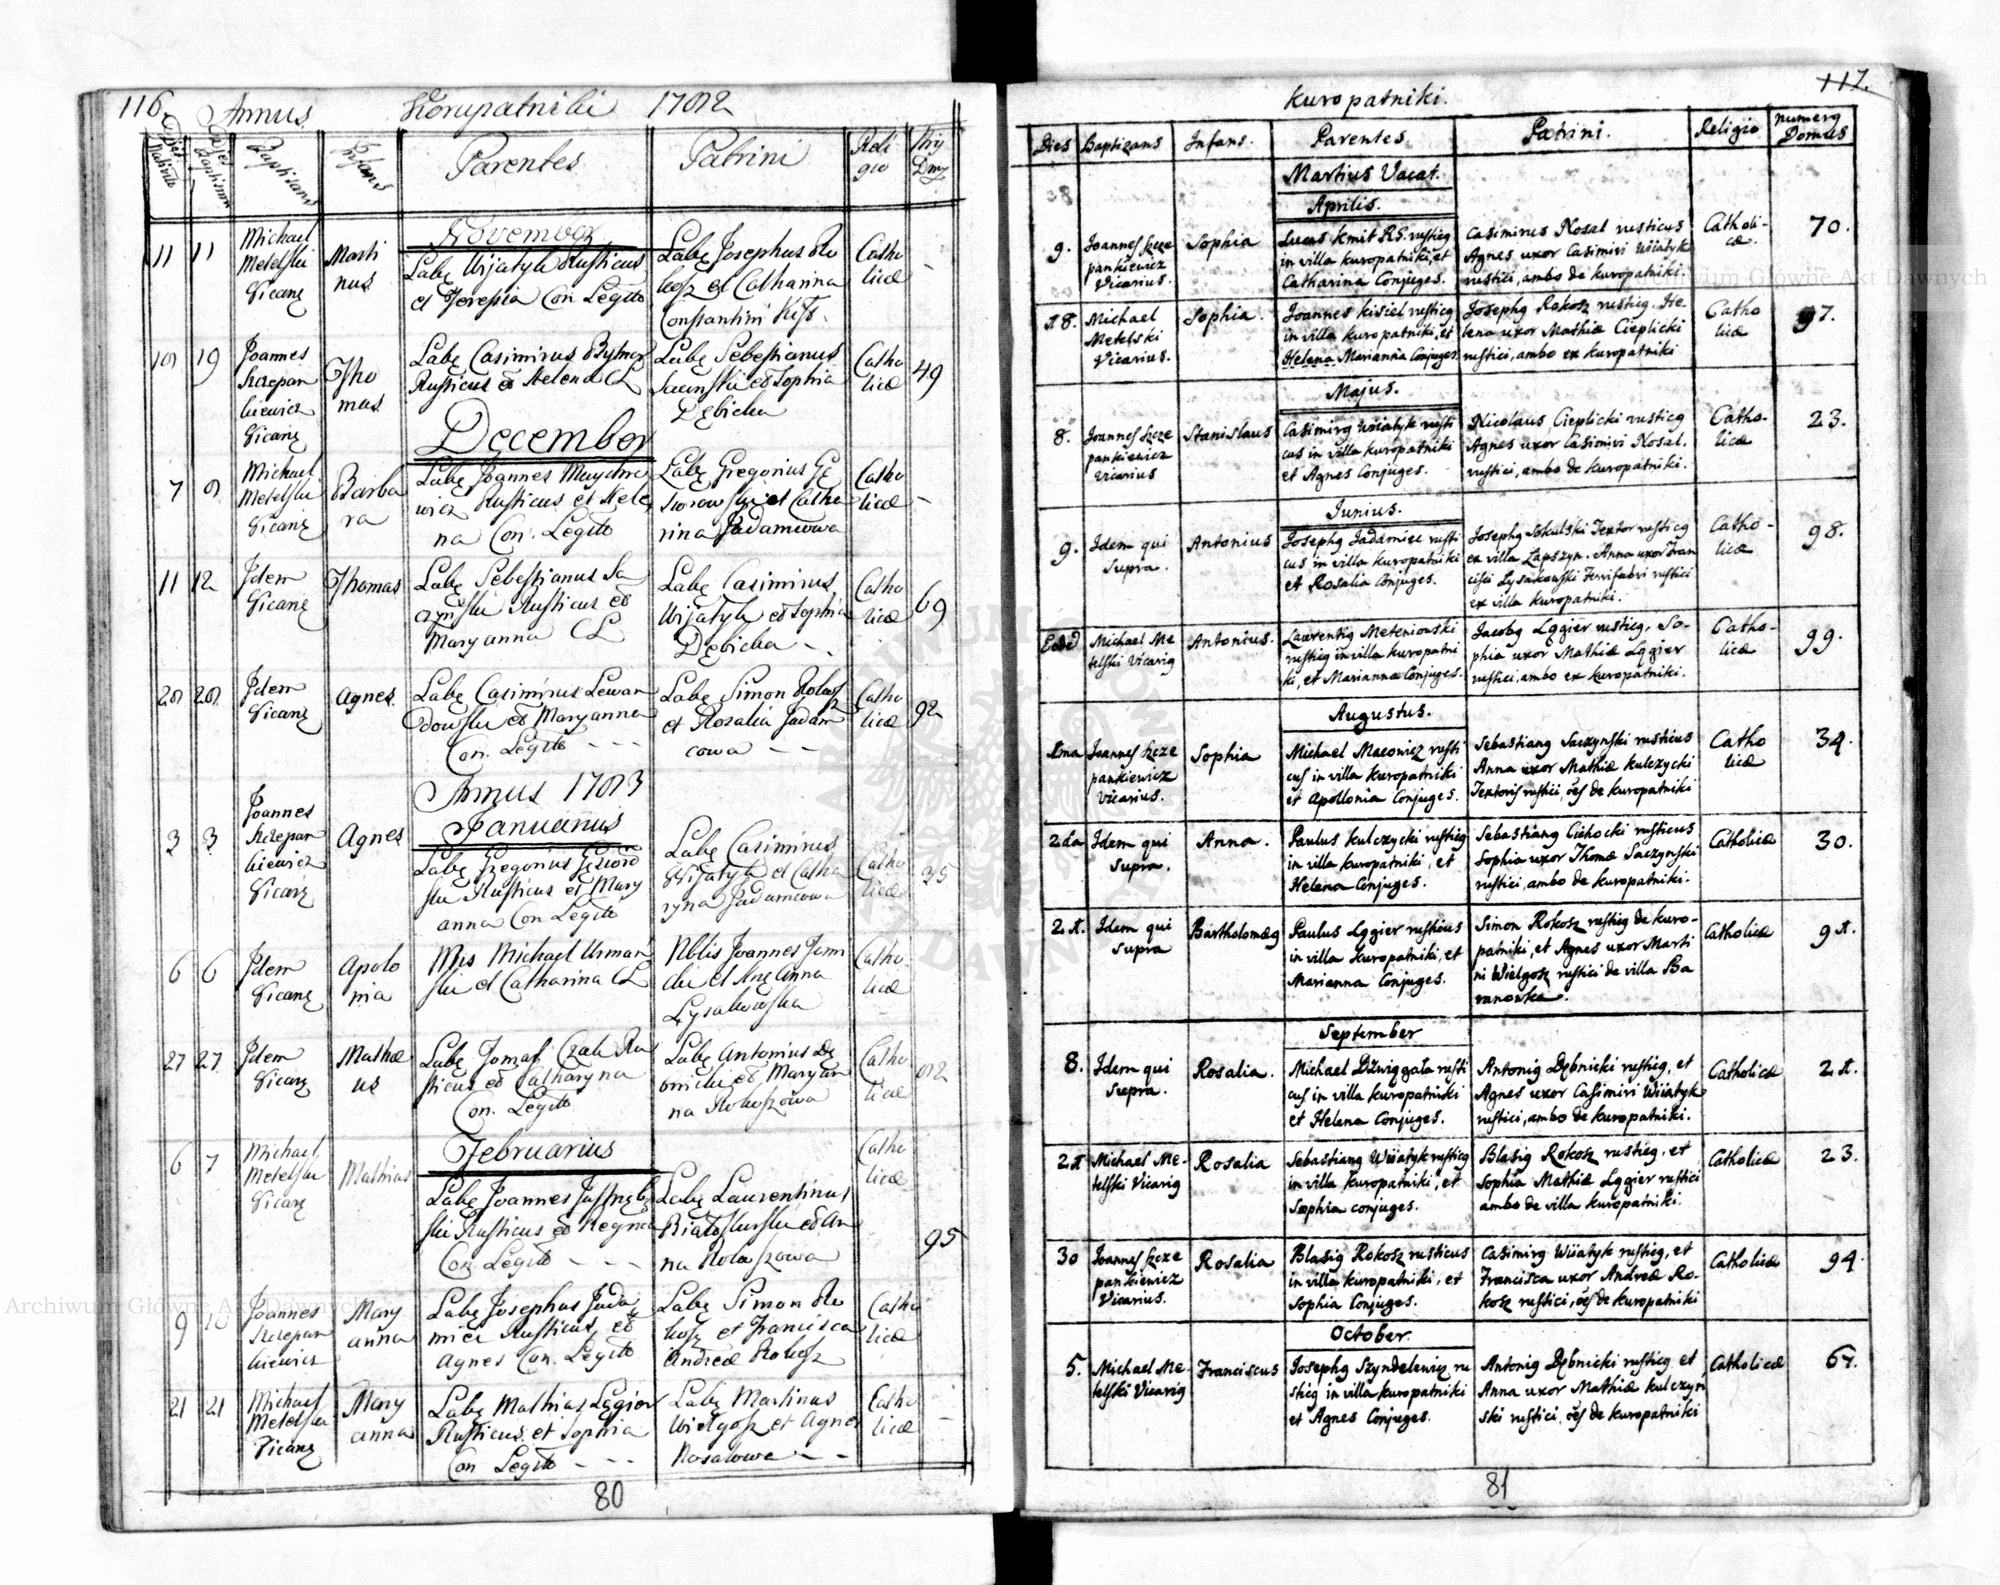 116.
Annus
Koropatniki 1792
Dies Nativit.
Dies Baptismi
Baptisans
Infans
Parentes
Patrini
Reli
gio
Nrs
Dms
November
11 11
Michael
Metelski
Vicars
Marti
nus
Labs Wijatyk Rusticus
et Teresia Con Legite
Labs Josephus Ro
kosz et Catharina
Constantini
Catho
licæ
19 19
Joannes
Szczepan
kiewicz
Vicars
Tho
mas
Labs Casimirus
Rusticus et Helena CL
Labs Sebestianus
Saczynski et Sophia
Dębicka
Catho
licæ
49
December
7 9
Michael
Metelski
Vicars
Barba
ra
Labs Joannes
wicz Rusticus et Hele
na Con. Legite
Labs Gregorius Gą
siorowski et Catha
rina Jadamcowa
Catho
licæ
11 12
Idem
Vicars
Thomas
Labs Sebestianus Sa
czynski Rusticus et
Maryanna CL
Labs Casimirus
Wijatyk et Sophia
Dębicka
Catho
licæ
69
29 29
Idem
Vicars
Agnes
Labs Casimirus Lewan
dowski et Maryanna
Con. Legite
Labs Simon Rokosz
et Rosalia Jadam
cowa
Catho
licæ
92
Annus 1793
Januarius
3 3
Joannes
Szczepan
kiewicz
Vicars
Agnes
Labs Gregorius Gąsioro
ski Rusticus et Mary
anna Con Legite
Labs Casimirus
Wijatyk et Catha
ryna Jadamcowa
Catho
licæ
35
6 6
Idem
Vicars
Apolo
nia
Michael Urman
ski et Catharina CL
Nblis Joannes
et Anna
Lysakowska
Catho
licæ
27 27
Idem
Vicars
Mathæ
us
Labs Tomas Czala Ru
sticus et Catharyna
Con. Legite
Labs Antonius Dę
bnicki et Maryan
na Rokoszowa
Catho
licæ
92
Februarius
6 7
Michael
Metelski
Vicars
Mathias
Labs Joannes Jastrzęb
ski Rusticus et Regina
Con. Legite
Labs Laurentinus
Białoskurski et An
na Rokoszowa
Catho
licæ
95
9 10
Joannes
Szczepan
kiewicz
Mary
anna
Labs Josephus Jada
miec Rusticus et
Agnes Con. Legite
Labs Simon Ro
kosz et Francisca
Andreæ Rokosz
Catho
licæ
21 21
Michael
Metelski
Vicars
Mary
anna
Labs Mathias Lggier
Rusticus et Sophia
Con Legite
Labs Martinus
Wielgosz et Agnes
Nosalowa
Catho
licæ
80
117.
Kuropatniki.
Dies
Baptizans
Infans.
Parentes
Patrini.
Religio
numerg
Domus
Martius Vacat.
Aprilis.
9.
Joannes Szcze
pankiewicz
Vicarius.
Sophia
Lucas Kmit RS. rusticg
in villa Kuropatniki, et
Catharina Conjuges.
Casimirus Nosal rusticus
Agnes uxor Casimiri Wiiatyk
rustici, ambo de Kuropatniki.
Catholi-
cæ
70.
18.
Michael
Metelski
Vicarius.
Sophia.
Joannes Kisiel rusticg
in villa Kuropatniki, et
Helena Marianna Conjuges
Josephg Rokosz rusticg. He-
lena uxor Mathiæ Cieplicki
rustici, ambo ex Kuropatniki
Catho
licæ
97.
Majus.
8.
Joannes Szcze
pankiewicz
Vicarius
Stanislaus
Casimirg Wiiatyk rusti
cus in villa Kuropatniki
et Agnes Conjuges.
Nicolaus Cieplicki rusticg
Agnes uxor Casimiri Nosal.
rustici, ambo de Kuropatniki.
Catho-
licæ
23.
Junius.
9.
Idem qui
supra.
Antonius
Josephg Jadamiec rusti
cus in villa Kuropatniki
et Rosalia Conjuges.
Josephg Sokulski Textor rusticg
ex villa Lapszyn. Anna uxor Fran
cisci Lysakowski Ferrifabri rustici
ex villa Kuropatniki.
Catho-
licæ
98.
Eodē
Michael Me
telski Vicarig
Antonius.
Laurentig Meteniowski
rusticg in villa Kuropatni
ki, et Marianna Conjuges.
Jacobg Lggier rusticg. So-
phia uxor Mathiæ Lggier
rustici, ambo ex Kuropatniki.
Catho-
licæ
99.
Augustus.
1ma
Joannes Szcze
pankiewicz
Vicarius.
Sophia
Michael Macowicz rusti
cus in villa Kuropatniki
et Apollonia Conjuges.
Sebastiang Saczynski rusticus
Anna uxor Mathiæ Kulczycki
Textoris rustici, oēs de Kuropatniki
Catho
licæ
34.
2da
Idem qui
supra.
Anna.
Paulus Kulczycki rusticg
in villa Kuropatniki, et
Helena Conjuges.
Sebastiang Cichocki rusticus
Sophia uxor Thomæ Saczynski
rustici, ambo de Kuropatniki.
Catholicæ
30.
21.
Idem qui
supra
Bartholomæg
Paulus Lggier rusticus
in villa Kuropatniki, et
Marianna Conjuges.
Simon Rokosz rusticg de Kuro-
patniki, et Agnes uxor Marti
ni Wielgosz rustici de villa Ba
ranowka.
Catholicæ
91.
September
8.
Idem qui
supra.
Rosalia.
Michael Dźwiggała rusti
cus in villa Kuropatniki
et Helena Conjuges.
Antonig Dębnicki rusticg, et
Agnes uxor Casimiri Wiiatyk
rustici, ambo de Kuropatniki.
Catholicæ
21.
21
Michael Me-
telski Vicarig
Rosalia
Sebastiang Wiiatyk rusticg
in villa Kuropatniki, et
Sophia conjuges.
Blasig Rokosz rusticg, et
Sophia Mathiæ Lggier rustici
ambo de villa Kuropatniki.
Catholicæ
23.
30
Joannes Szcze
pankiewicz
Vicarius.
Rosalia
Blasig Rokosz rusticus
in villa Kuropatniki, et
Sophia Conjuges.
Casimirg Wiiatyk rusticg, et
Francisca uxor Andreæ Ro-
kosz rustici, oēs de Kuropatniki
Catholicæ
94.
October.
5.
Michael Me
telski Vicarig
Franciscus
Josephg Szyndelewicz ru
sticg in villa Kuropatniki
et Agnes Conjuges.
Antonig Dębnicki rusticg et
Anna uxor Mathiæ Kulczyn
ski rustici, oēs de Kuropatniki
Catholicæ
67.
81
Archiwum Główne Akt Dawnych
Archiwum Główne Akt Dawnych